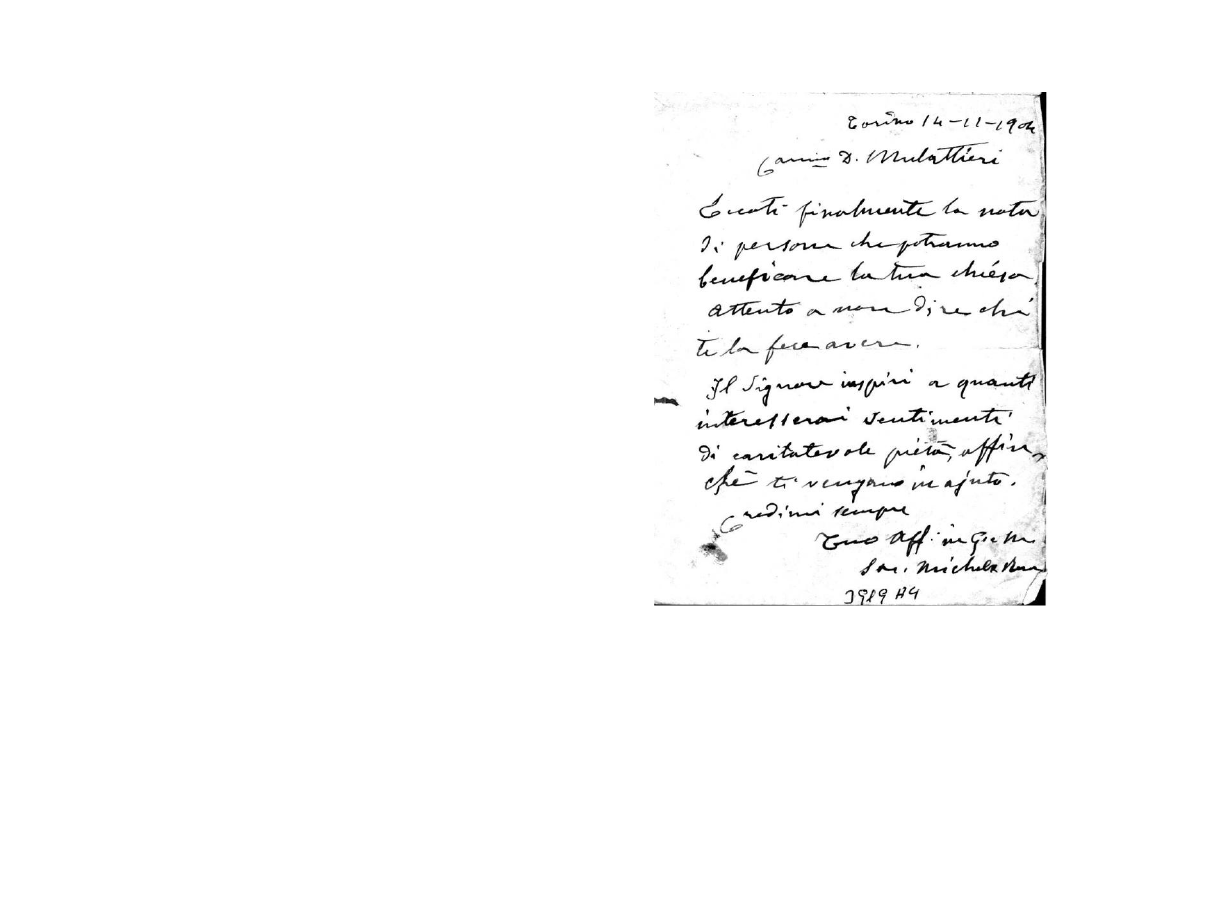 Torino 14-11-1904
Carmo D. Mulattieri
Eccoti finalmente la nota
di persone che potranno
beneficare la tua chiesa
Attento a non dire chi
te la fece avere.
Il Signore inspiri a quanti
interesserai sentimenti
di caritatevole pietà, affin-
chè ti vengano in ajuto.
Credimi sempre
Tuo Aff. in G. e M.
Sac. Michele Rua
3989 A4